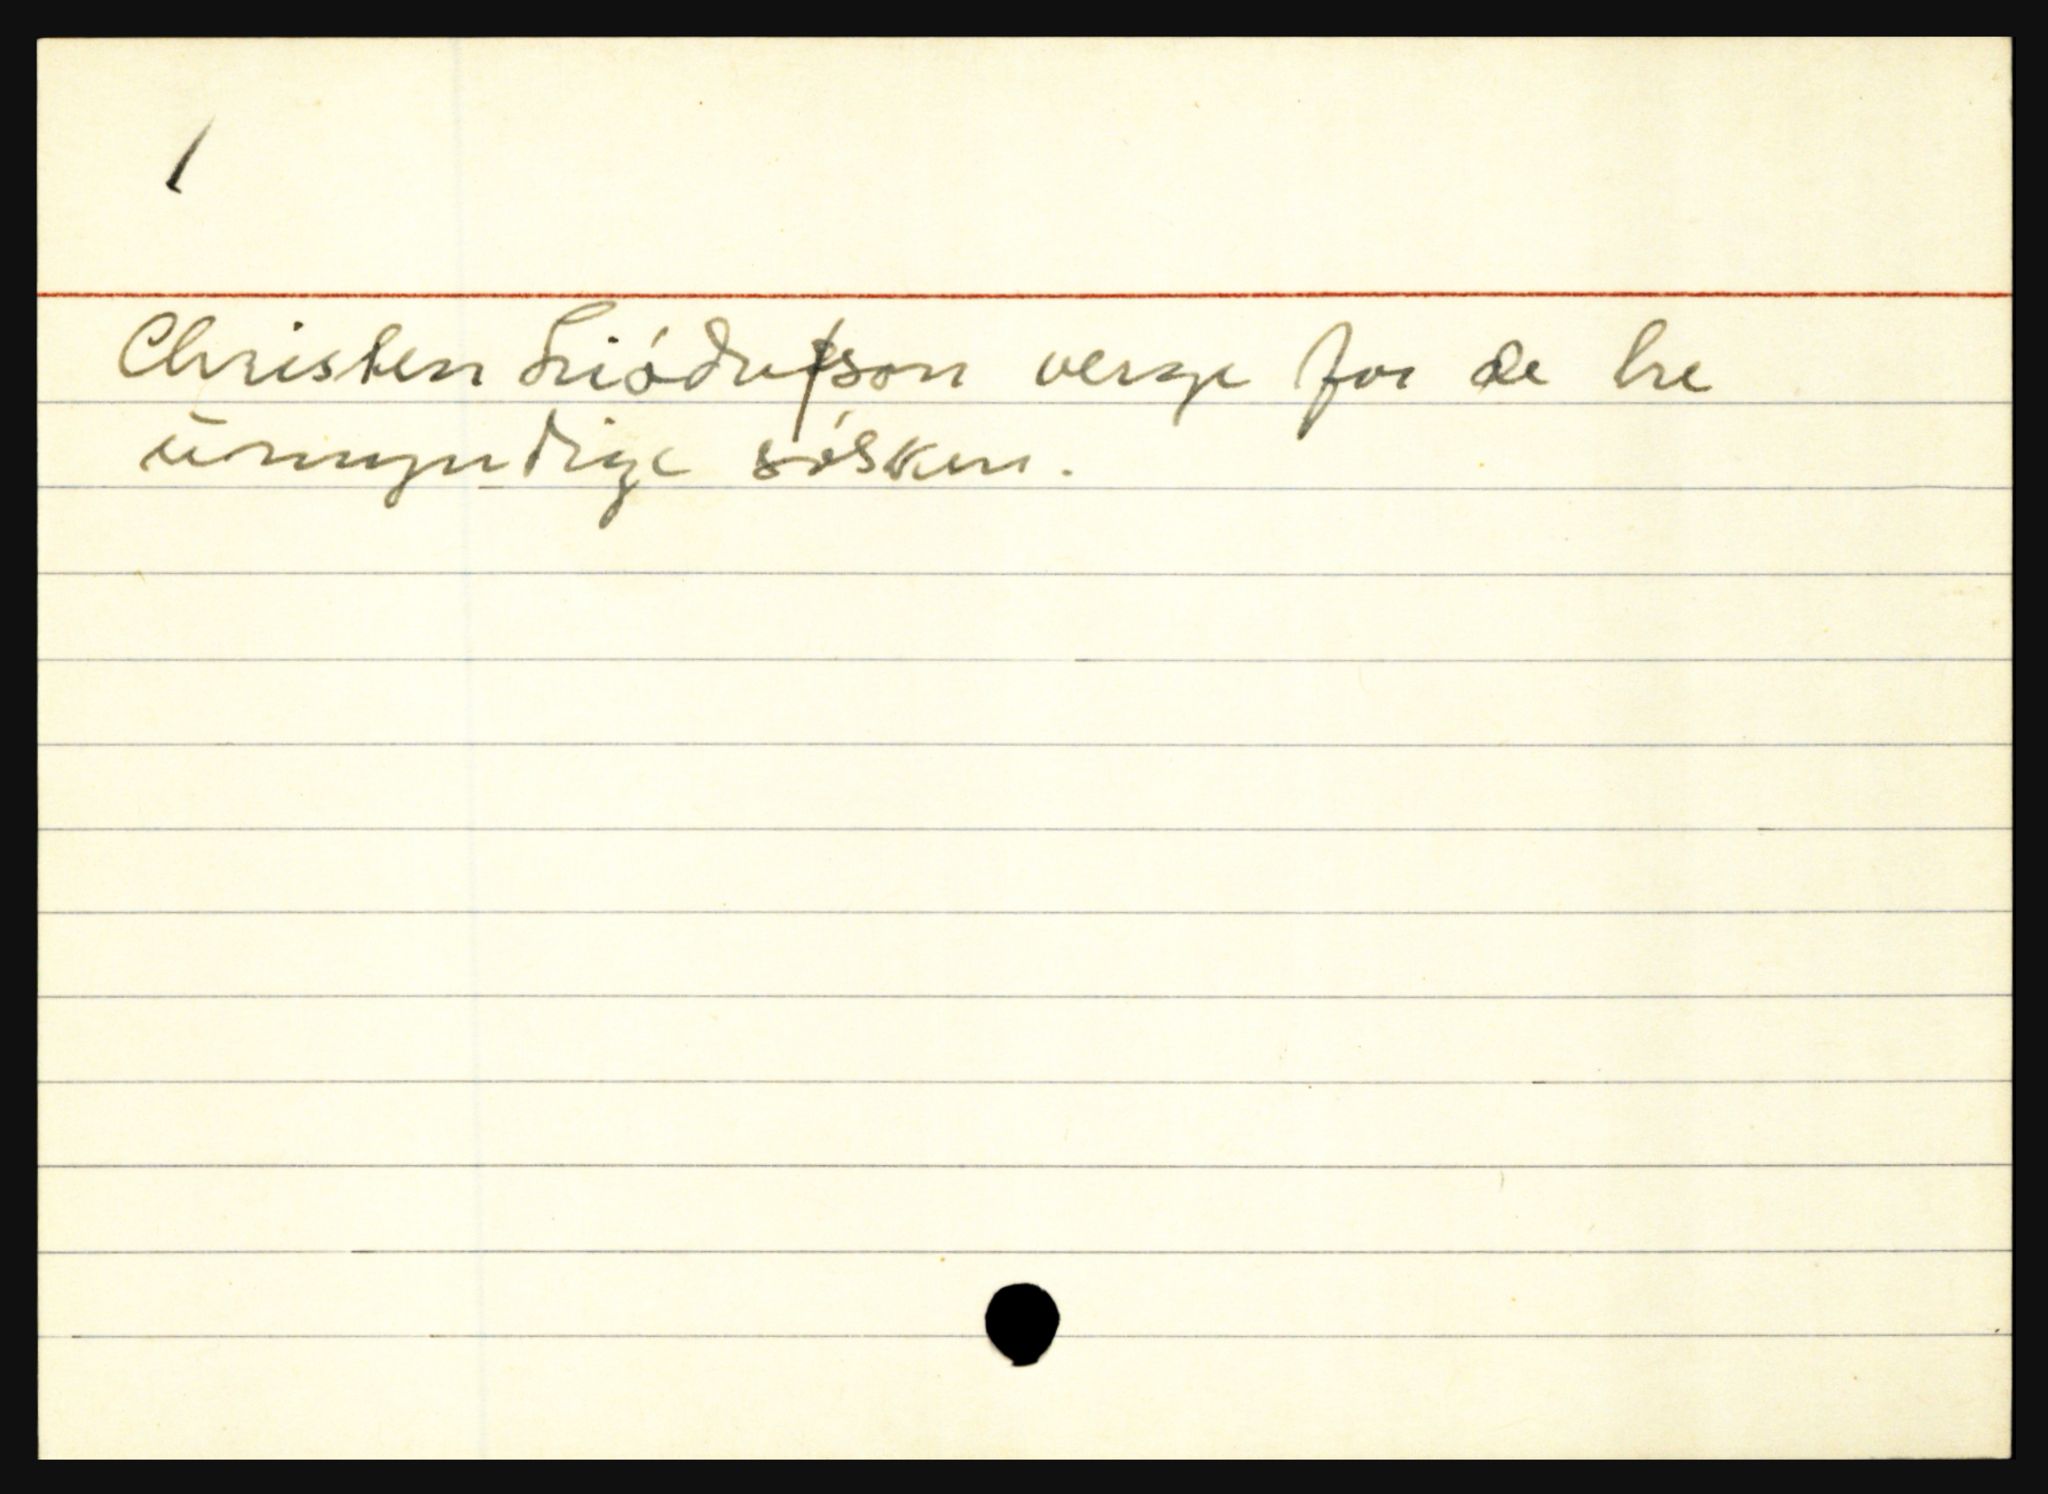 1
Christen verge for de tre
umyndige søsken.